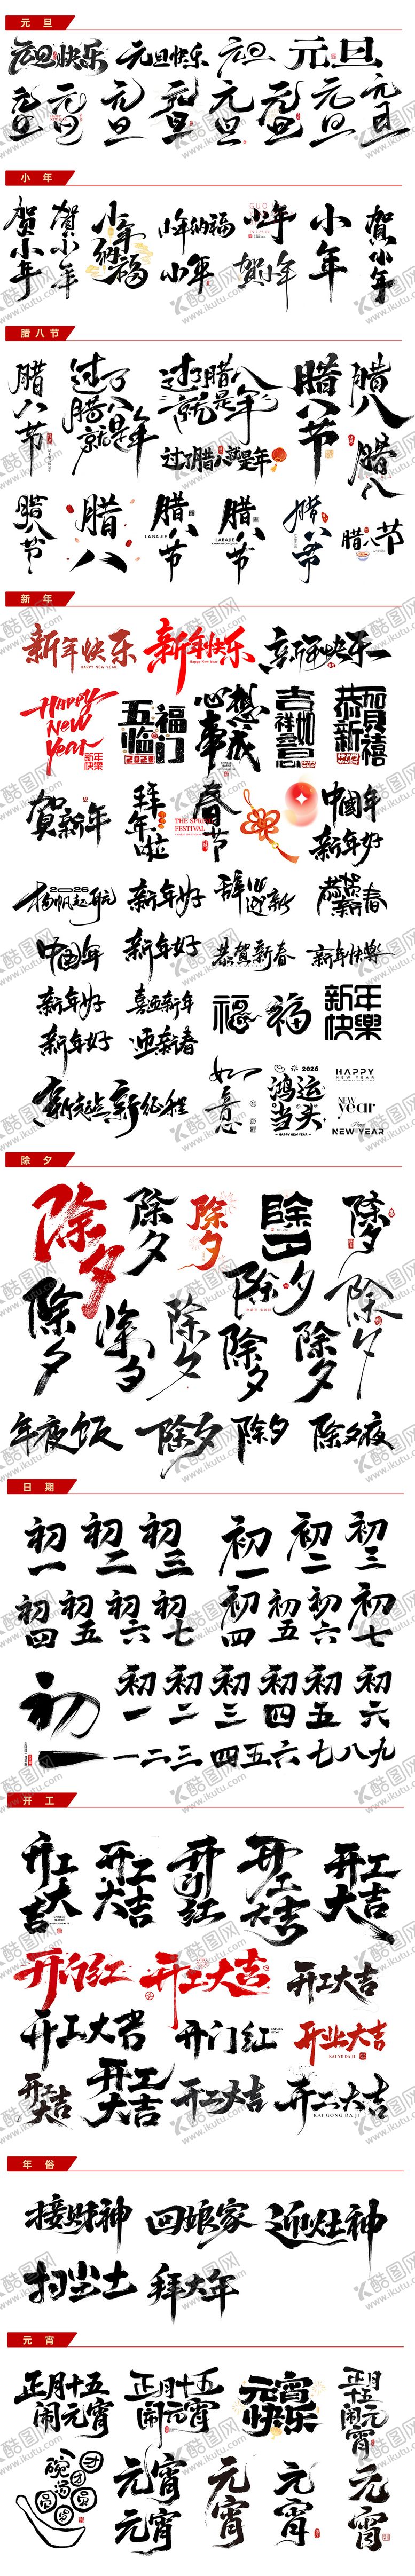 元旦
元旦快乐 元旦快乐 元旦 元旦
元旦 元旦 元旦 元旦 元旦 元旦 元旦 元旦
小年
贺小年 贺小年 小年纳福 小年纳福 小年 小年 贺小年
小年 贺小年
腊八节
腊八节 过了腊八就是年 过了腊八就是年 腊八节 腊八
过了腊八就是年 腊八
腊八节 腊八 腊八节 腊八节 腊八节 腊八节
LABAJIE LABAJIE
新年
新年快乐 新年快乐 新年快乐
HAPPY NEW YEAR Happy New Year
Happy New Year 新年快樂 五福临门 2026 心想事成 吉祥如意 恭贺新禧
贺新年 拜年啦 春节 中國年
THE SPRING FESTIVAL 新年好
2026 扬帆起航 新年好 辞旧迎新 恭贺新春
中國年 新年好 恭贺新春 新年快樂
新年好 喜迎新年 福 福 新年快樂
新年好 迎新春
新起点 新征程 如意 鸿运当头 2026 HAPPY NEW YEAR
HAPPY NEW YEAR
new year
Happy NEW YEAR
除夕
除夕 除夕 除夕 除夕 除夕
除夕 除夕 除夕 除夕 除夕 除夕 除夕
年夜饭 除夕 除夕 除夕夜
日期
初一 初二 初三 初一 初二 初三
初四 初五 初六 初七 初四 初五 初六 初七
初一 初一 初二 初三 初四 初五 初六
一二三 四五六 七八九
开工
开工大吉 开工大吉 开门红 开工大吉 开工大吉
开门红 开工大吉 开工大吉
开工大吉 开门红 开业大吉
KAI YE DA JI
开工大吉 开工大吉 开工大吉 开工大吉
KAI GONG DA JI
年俗
接财神 回娘家 迎灶神
扫尘土 拜大年
元宵
正月十五闹元宵 正月十五闹元宵 元宵快乐 正月十五闹元宵
一碗汤圆团团圆圆 元宵 元宵 元宵 元宵 元宵
酷图网
www.ikutu.com